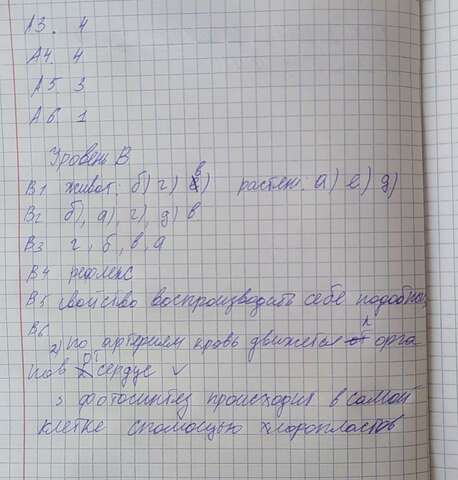 А3. 4
А4. 4
А5. 3
А6. 1
Уровень В
В1 живот: б) г) в) растен: а) е) д)
В2 б), а), г), д) в
В3 г, б, в, а
В4 рефлекс
В5 свойство воспроизводить себе подобных
В6
2) по артериям кровь движется к орга
нов от сердце ✓
3 фотосинтез происходит в самой
клетке спомощью хлоропластов